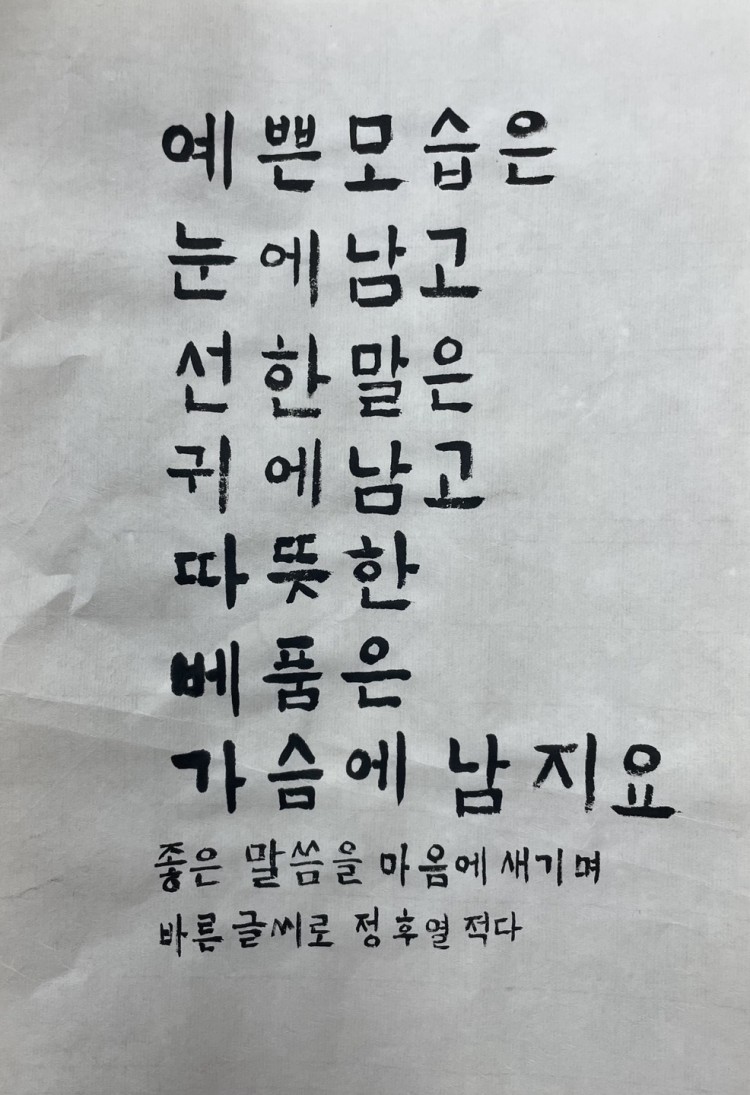 예쁜모습은
눈에남고
선한말은
귀에남고
따뜻한
베품은
가슴에 남지요
좋은 말씀을 마음에 새기며
바른 글씨로 정후열 적다